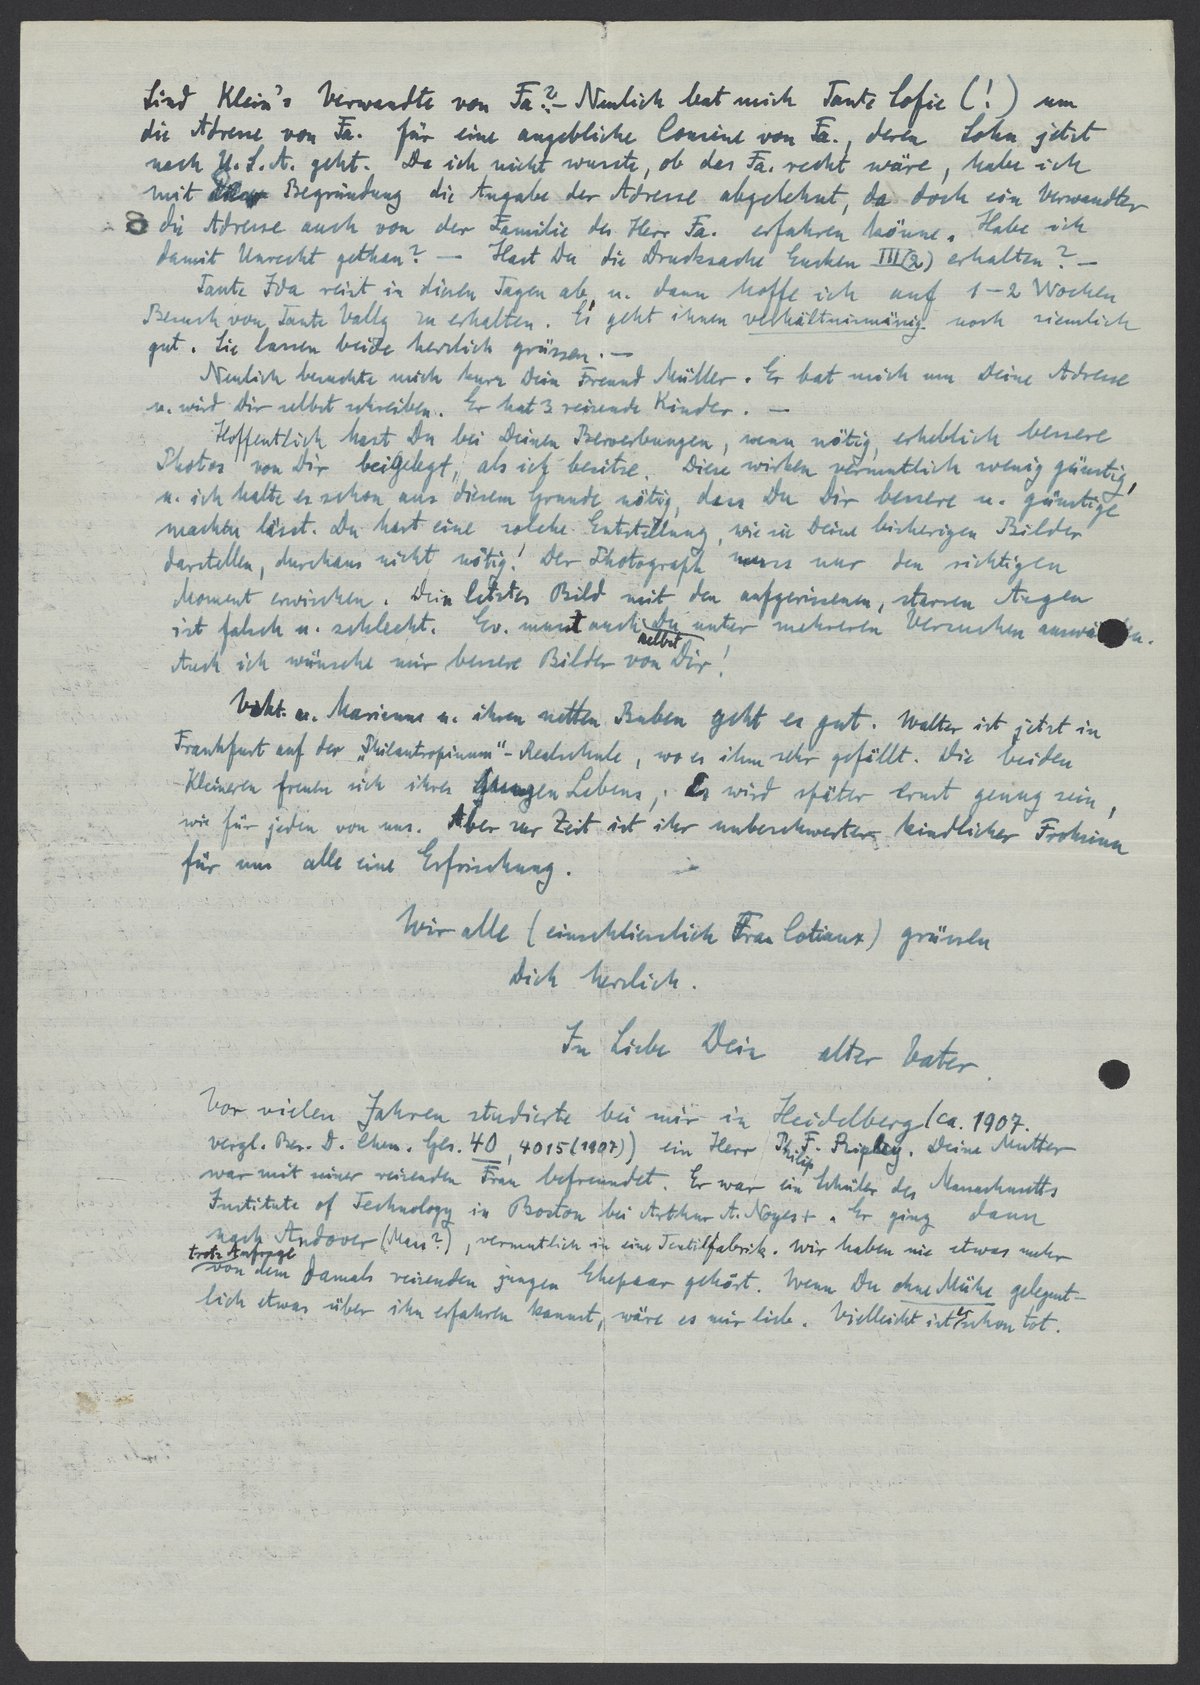 Sind Klein's Verwandte von Fa.? – Neulich bat mich Tante Sofie (!) um
die Adresse von Fa. für eine angebliche Cousine von Fa., deren Sohn jetzt
nach U.S.A. geht. Da ich nicht wusste, ob das Fa. recht wäre, habe ich
mit Begründung die Angabe der Adresse abgelehnt, da doch ein Verwandter
die Adresse auch von der Familie des Herr Fa. erfahren könne. Habe ich
damit Unrecht gethan? — Hast Du die Drucksache Eucken III(2) erhalten? –
Tante Ida reist in diesen Tagen ab, u. dann hoffe ich auf 1–2 Wochen
Besuch von Tante Vally zu erhalten. Es geht ihnen verhältnismässig noch ziemlich
gut. Sie lassen beide herzlich grüssen. —
Neulich besuchte mich kurz Dein Freund Müller. Er bat mich um Deine Adresse
u. wird Dir selbst schreiben. Er hat 3 reizende Kinder. —
Hoffentlich hast Du bei Deinen Bewerbungen, wenn nötig, erheblich bessere
Photos von Dir beigelegt, als ich besitze. Diese wirken vermutlich wenig günstig,
u. ich halte es schon aus diesem Grunde nötig, dass Du Dir bessere u. günstige
machen lässt. Du hast eine solche Entstellung, wie sie Deine bisherigen Bilder
darstellen, durchaus nicht nötig! Der Photograph muss nur den richtigen
Moment erwischen. Dein letztes Bild mit den aufgerissenen, starren Augen
ist falsch u. schlecht. Ev. musst auch Du selbst unter mehreren Versuchen auswählen.
Auch ich wünsche mir bessere Bilder von Dir!
u. Marianne u. ihren netten Buben geht es gut. Walter ist jetzt in
Frankfurt auf der „Philantropinum"-Realschule, wo es ihm sehr gefällt. Die beiden
Kleineren freuen sich ihres jungen Lebens; Es wird später ernst genug sein,
wie für jeden von uns. Aber zur Zeit ist ihr unbeschwerter kindlicher Frohsinn
für uns alle eine Erfrischung. –
Wir alle (einschliesslich Frau Cotiaux) grüssen
Dich herzlich.
In Liebe Dein alter Vater.
Vor vielen Jahren studierte bei mir in Heidelberg (ca. 1907.
vergl. Ber. D. Chem. Ges. 40, 4015 (1907)) ein Herr Philip F. Ripley. Deine Mutter
war mit seiner reizenden Frau befreundet. Er war ein Schüler des Massachusetts
Institute of Technology in Boston bei Arthur A. Noyes +. Er ging dann
nach Andover (Mass?), vermutlich in eine Textilfabrik. Wir haben nie etwas mehr
trotz Anfrage
von dem damals reizenden jungen Ehepaar gehört. Wenn Du ohne Mühe gelegent-
lich etwas über ihn erfahren kannst, wäre es mir lieb. Vielleicht ist er schon tot.